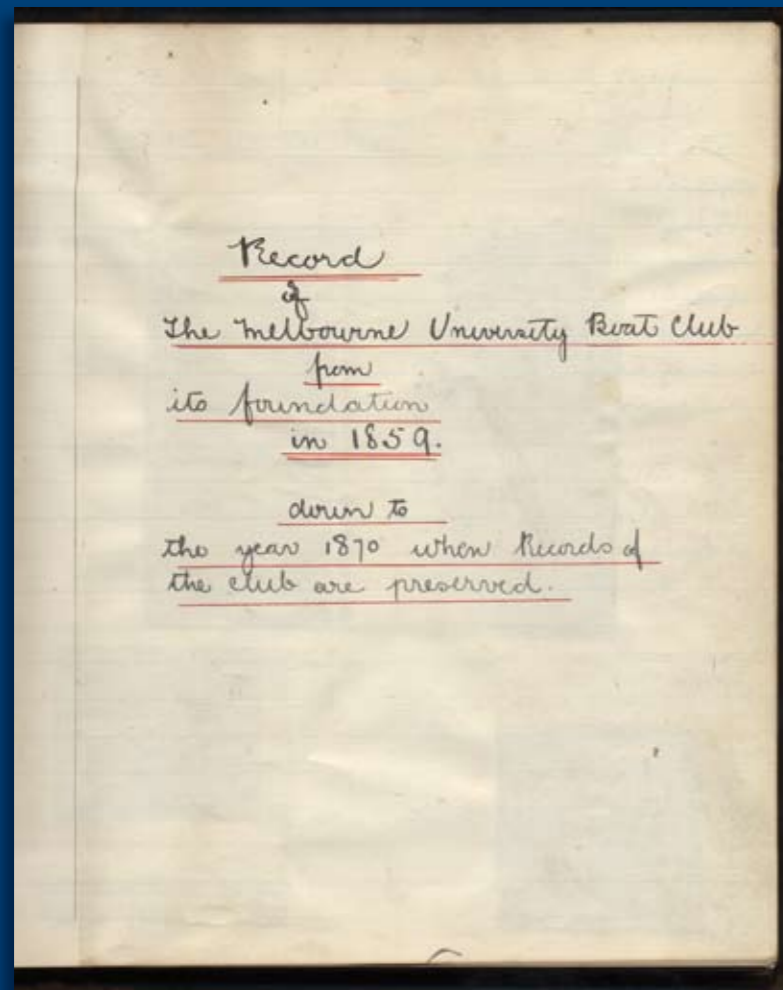 Record
of
The Melbourne University Boat Club
from
its foundation
in 1859.
down to
the year 1870 when Records of
the club are preserved.